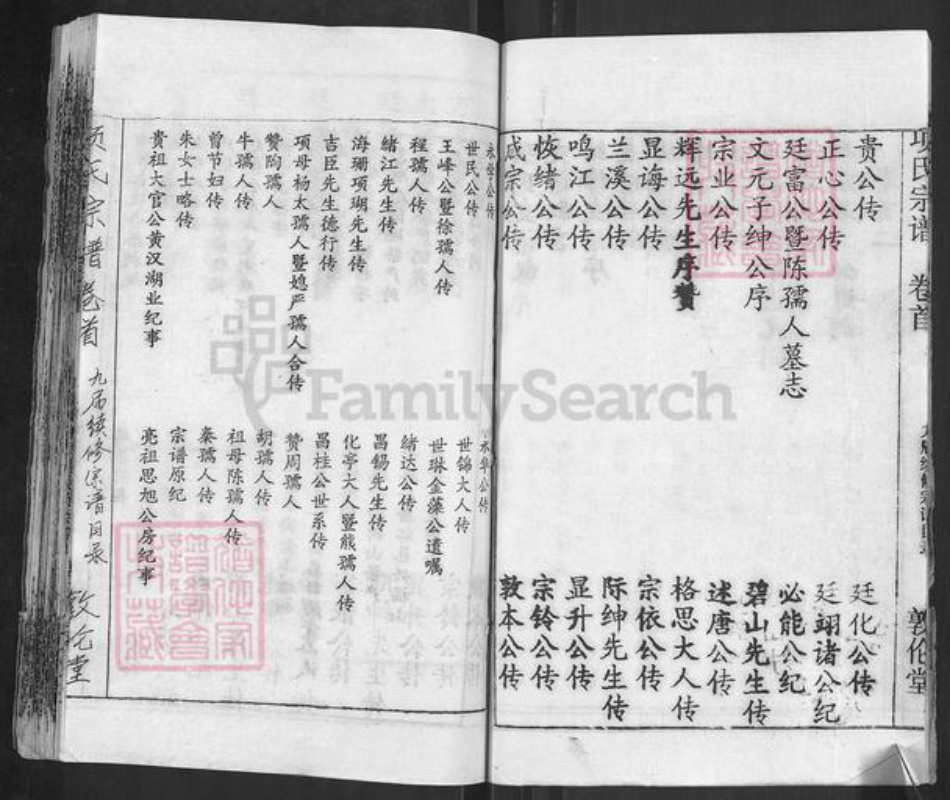 项氏宗谱 卷首
敦伦堂
贵公传
廷化公传
正心公传
廷翊诸公纪
廷富公暨陈孺人墓志
必能公纪
文元子绅公序
碧山先生传
宗业公传
述唐公传
辉远先生序赞
格思大人传
显诲公传
宗依公传
兰溪公传
际绅先生传
鸣江公传
显升公传
恢绪公传
宗铃公传
成宗公传
敦本公传
永学公传
永阜公传
世民公传
世锦大人传
王峰公暨徐孺人传
世琳金藻公遗嘱
程孺人传
绪达公传
绪江先生传
昌锡先生传
海珊项瑚先生传
化亭大人暨熊孺人传
吉臣先生德行传
昌桂公世系传
项母杨太孺人暨媳严孺人合传
赞周孺人
赞陶孺人
胡孺人传
牛孺人传
祖母陈孺人传
曾节妇传
秦孺人传
朱女士略传
宗谱原纪
贵祖大官公黄汉湖业纪事
亮祖思旭公房纪事
项氏宗谱 卷首 九届续修宗谱目录 敦伦堂
FamilySearch